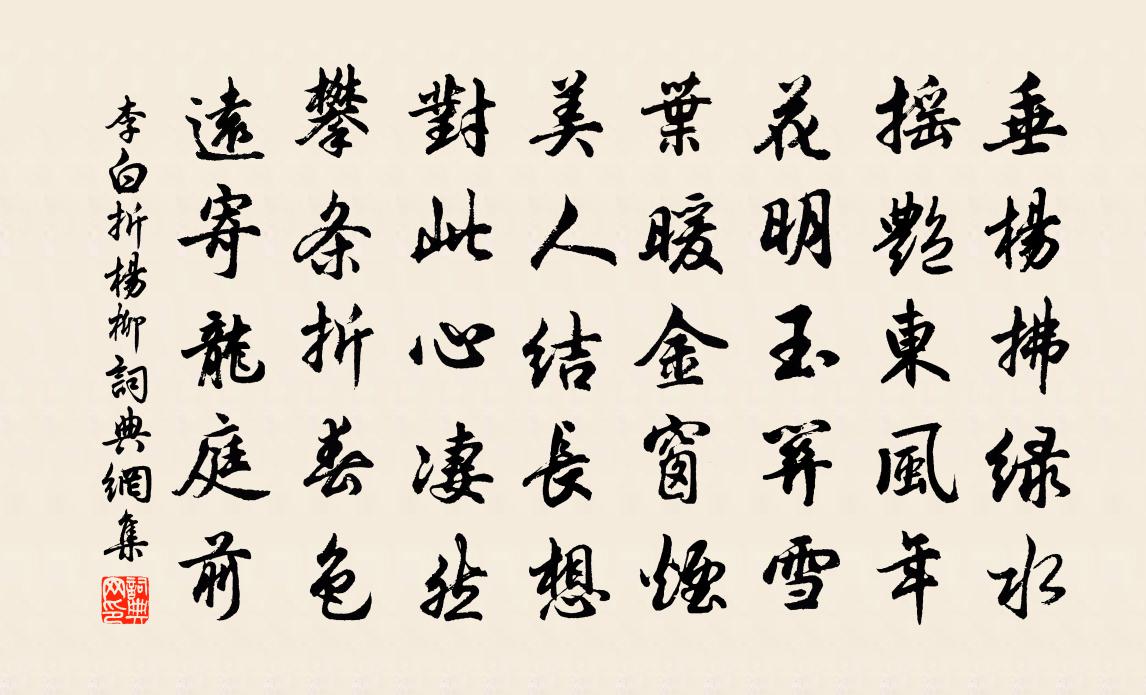 垂楊拂綠水
搖艷東風年
花明玉關雪
葉暖金窗煙
美人結長想
對此心淒然
攀条折春色
遠寄龍庭前
李白折楊柳詞典網集
詞典